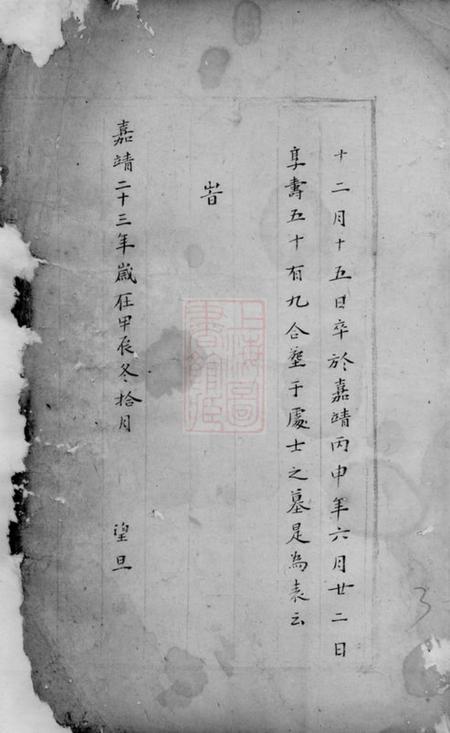 十二月十五日卒於嘉靖丙申年六月廿二日
享壽五十有九合塟于處士之墓是為表云
旹
嘉靖二十三年歲在甲辰冬拾月 望旦
上海圖書館藏
3